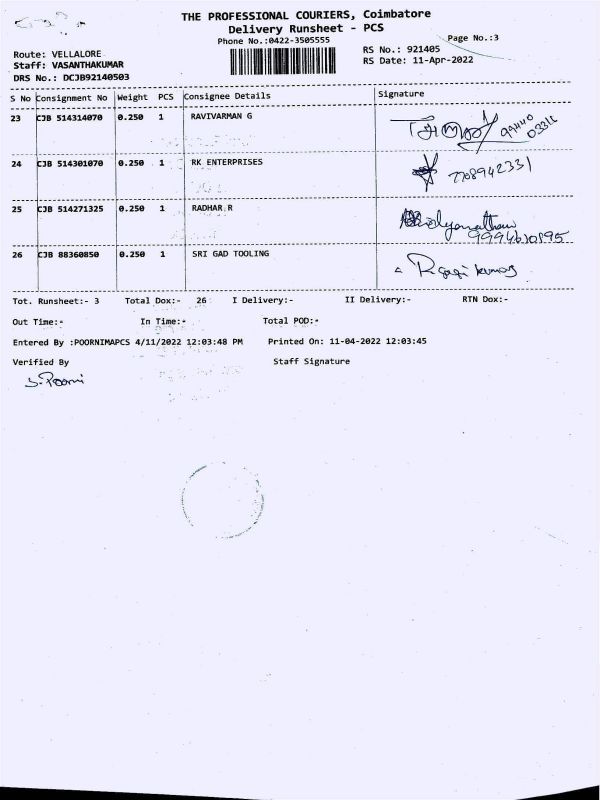 THE PROFESSIONAL COURIERS, Coimbatore
Delivery Runsheet - PCS
Phone No.:0422-3505555
Page No.:3
Route: VELLALORE
RS No.: 921405
Staff: VASANTHAKUMAR
RS Date: 11-Apr-2022
DRS No.: DCJB92140503
S No Consignment No Weight PCS Consignee Details Signature
23 CJB 514314070 0.250 1 RAVIVARMAN G
99440
03316
24 CJB 514301070 0.250 1 RK ENTERPRISES 7708942331
25 CJB 514271325 0.250 1 RADHAR.R
9994610195
26 CJB 88360850 0.250 1 SRI GAD TOOLING
Tot. Runsheet:- 3 Total Dox:- 26 I Delivery:- II Delivery:- RTN Dox:-
Out Time:- In Time:- Total POD:-
Entered By :POORNIMAPCS 4/11/2022 12:03:48 PM Printed On: 11-04-2022 12:03:45
Verified By Staff Signature
S. Poorni